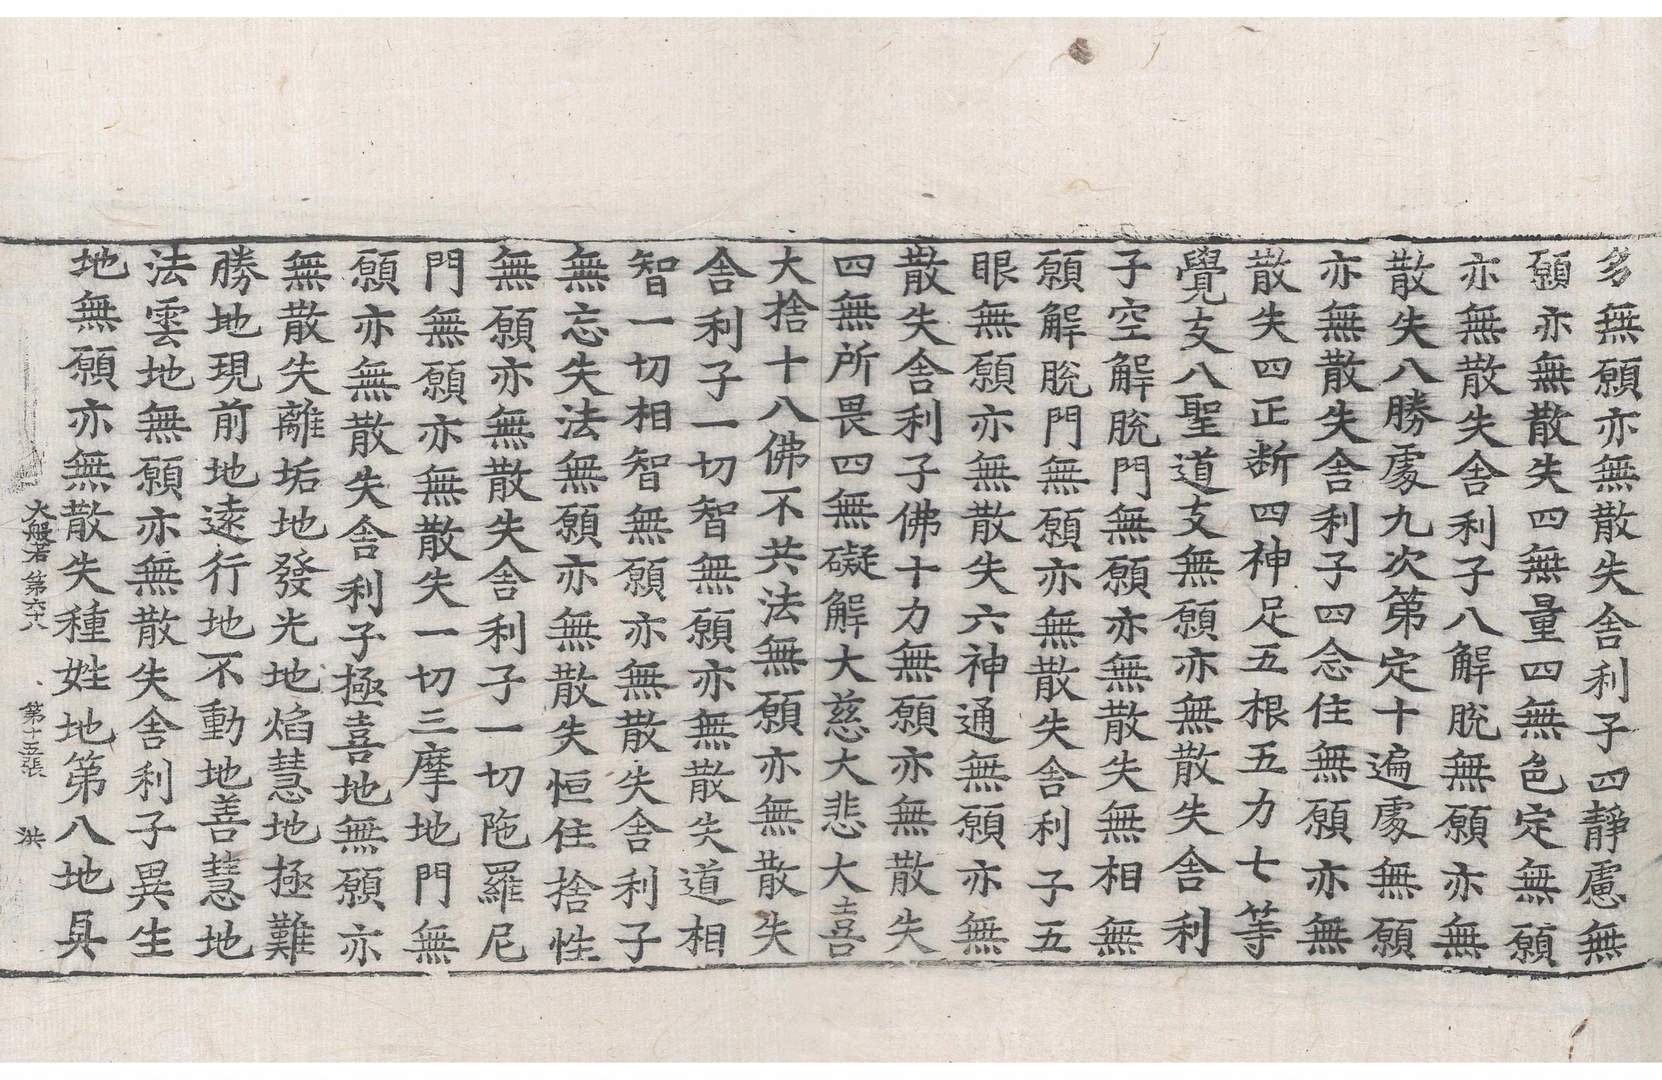 多無願亦無散失舍利子四靜慮無
願亦無散失四無量四無色定無願
亦無散失舍利子八解脫無願亦無
散失八勝處九次第定十遍處無願
亦無散失舍利子四念住無願亦無
散失四正斷四神足五根五力七等
覺支八聖道支無願亦無散失舍利
子空解脫門無願亦無散失無相無
願解脫門無願亦無散失舍利子五
眼無願亦無散失六神通無願亦無
散失舍利子佛十力無願亦無散失
四無所畏四無礙解大慈大悲大喜
大捨十八佛不共法無願亦無散失
舍利子一切智無願亦無散失道相
智一切相智無願亦無散失舍利子
無忘失法無願亦無散失恒住捨性
無願亦無散失舍利子一切陁羅尼
門無願亦無散失一切三摩地門無
願亦無散失舍利子極喜地無願亦
無散失離垢地發光地焰慧地極難
勝地現前地遠行地不動地善慧地
法雲地無願亦無散失舍利子異生
地無願亦無散失種姓地第八地具
大般若 第六十八 第十五張 洪